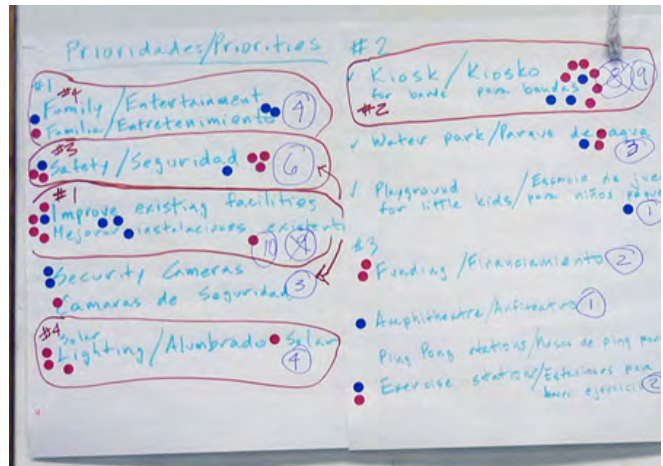 Prioridades/Priorities
#1
#4
Family/Entertainment
Familia/Entretenimiento 4
#3
Safety/Seguridad 6
#1
Improve existing facilities
Mejorar instalaciones
10 9
Security Cameras
Camaras de Seguridad 3
#4
Solar
Lighting/Alumbrado Solar
4
#2
Kiosk/Kiosko 8 9
for bands para bandas
#2
Water park/Parque de agua
3
Playground
for little kids/para niños
1
#3
Funding/Financiamiento 2
Amphitheatre/Anfiteatro 1
Ping Pong stations/Mesas de ping pong
Exercise stations/Estaciones para
hacer ejercicio 2